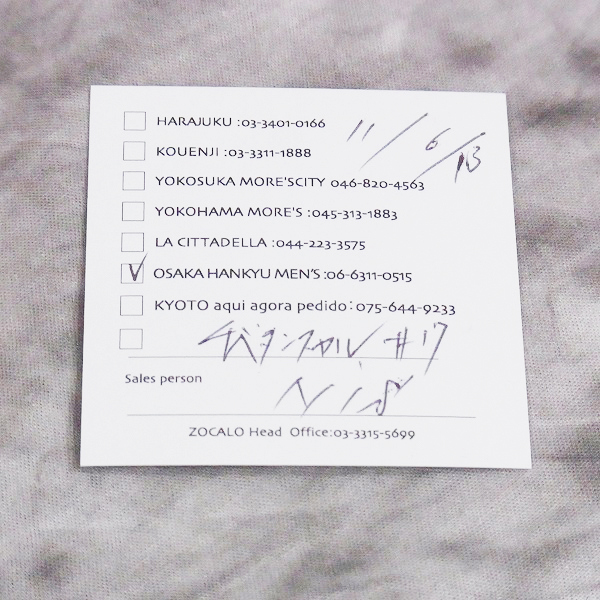 HARAJUKU :03-3401-0166
11/6/13
KOUENJI :03-3311-1888
YOKOSUKA MORE'SCITY 046-820-4563
YOKOHAMA MORE'S :045-313-1883
LA CITTADELLA :044-223-3575
V OSAKA HANKYU MEN'S :06-6311-0515
KYOTO aqui agora pedido:075-644-9233
#17
Sales person
ZOCALO Head Office:03-3315-5699